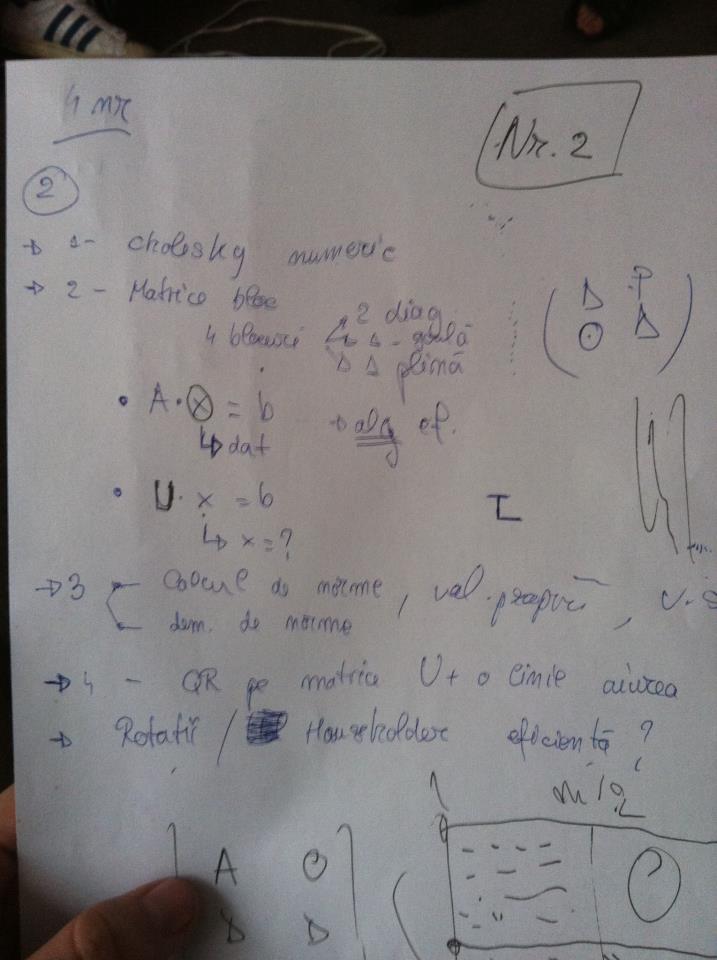 4 nr
Nr. 2
2
→ 1- Cholesky numeric
→ 2 - Matrice bloc
4 blocuri 2 diag
1 - goală
1 plină
D P
O D
• A · x = b → alg ef.
↳ dat
• U · x = b
↳ x = ?
→ 3 - Calcul de norme, val. proprii, v.s
- dem. de norme
→ 4 - QR pe matrice U + o linie aiurea
→ Rotatii / Householder eficientă?
1 m/2
A O
D D
O